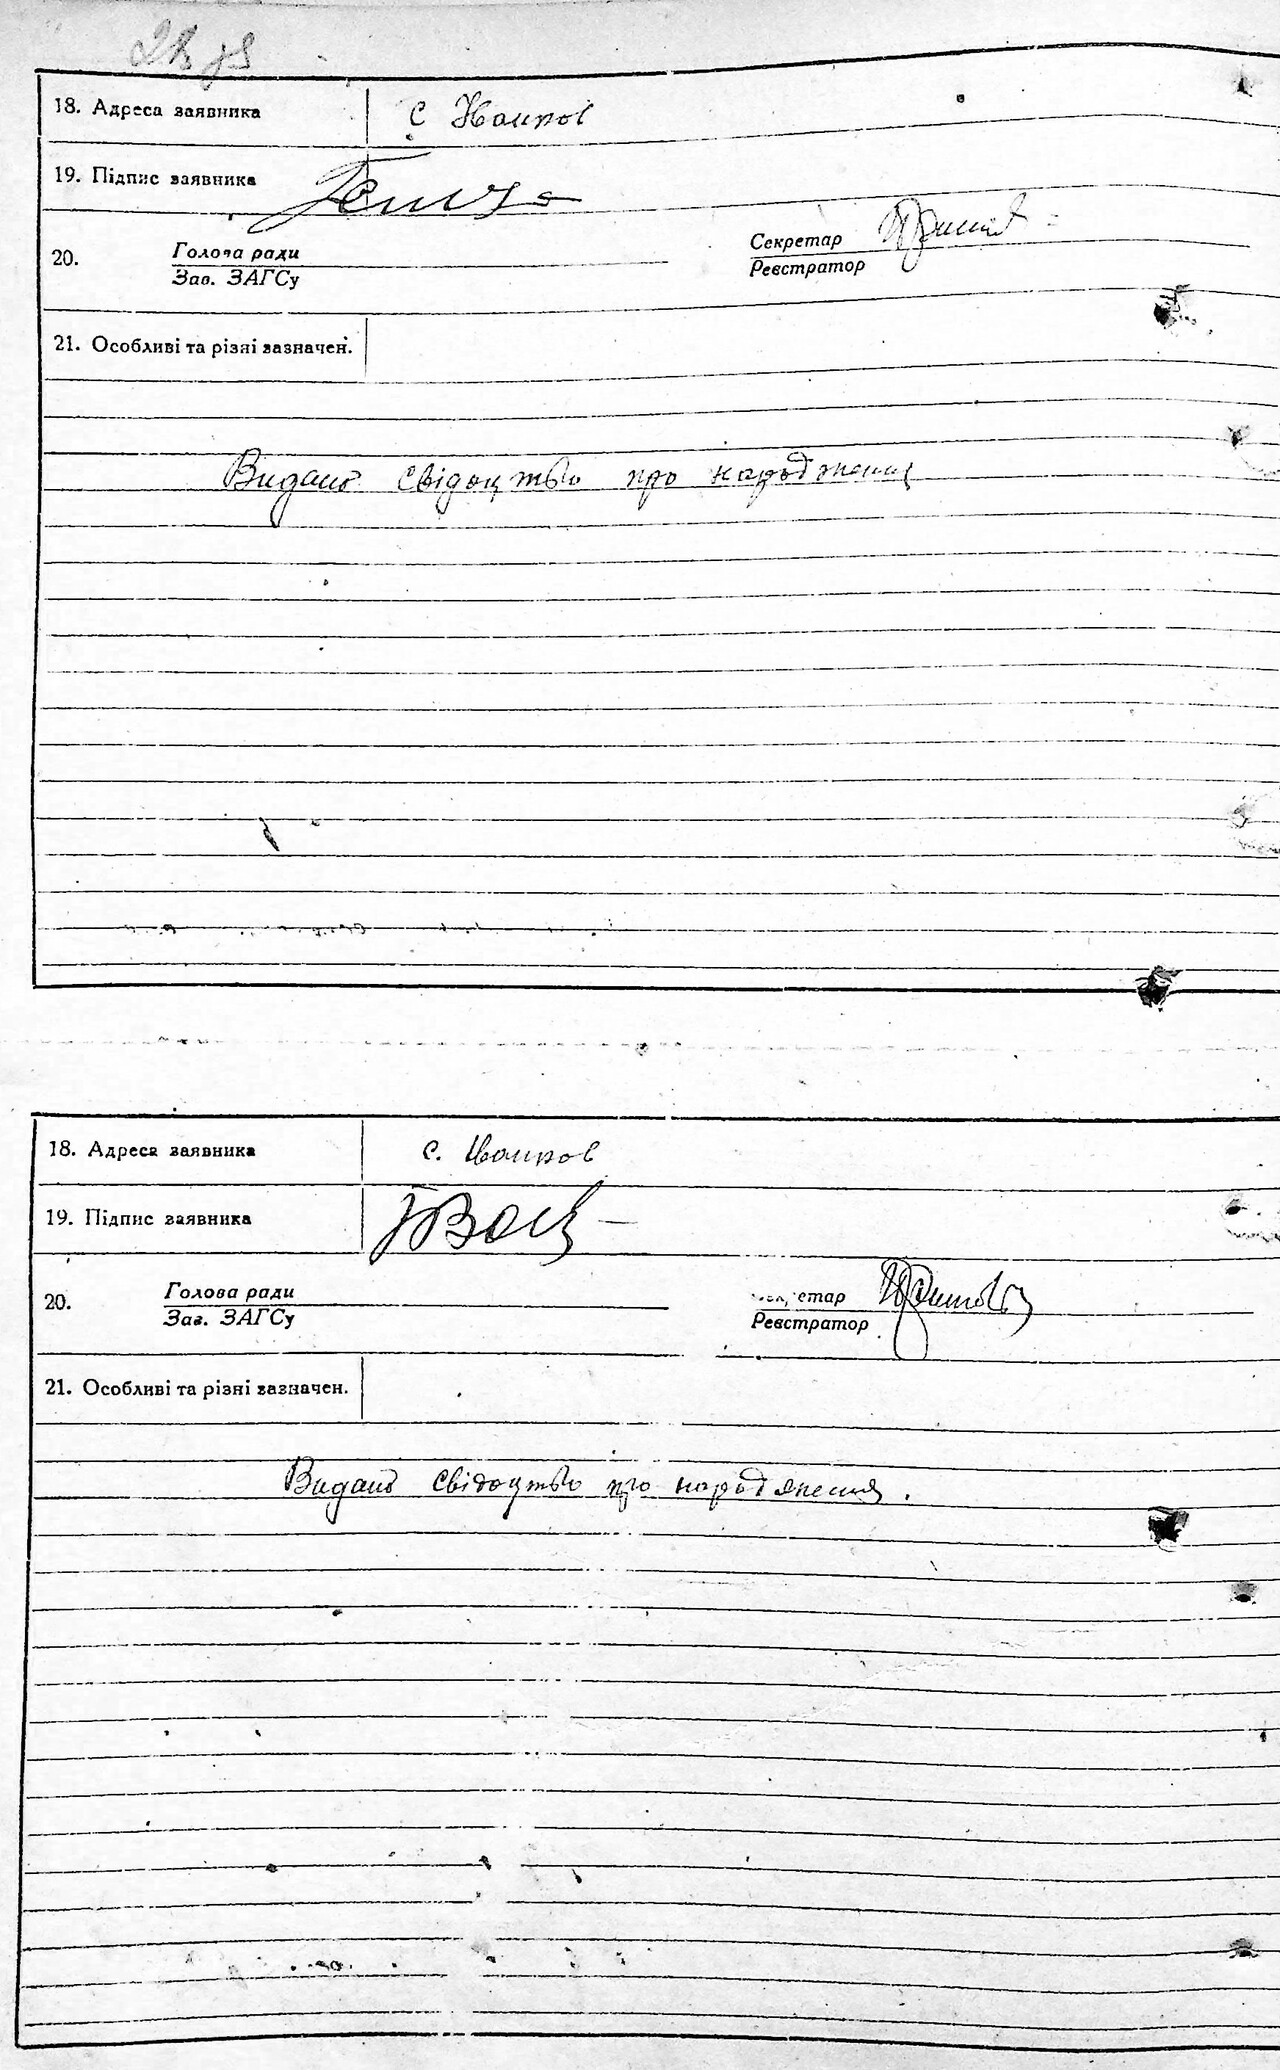 18. Адреса заявника с
19. Підпис заявника
20. Голова ради Секретар
Зав. ЗАГСу Реєстратор
21. Особливі та різні зазначен.
Видано свідоцтво про народження
18. Адреса заявника с.
19. Підпис заявника
20. Голова ради
Зав. ЗАГСу Реєстратор
21. Особливі та різні зазначен.
Видано свідоцтво про народження.